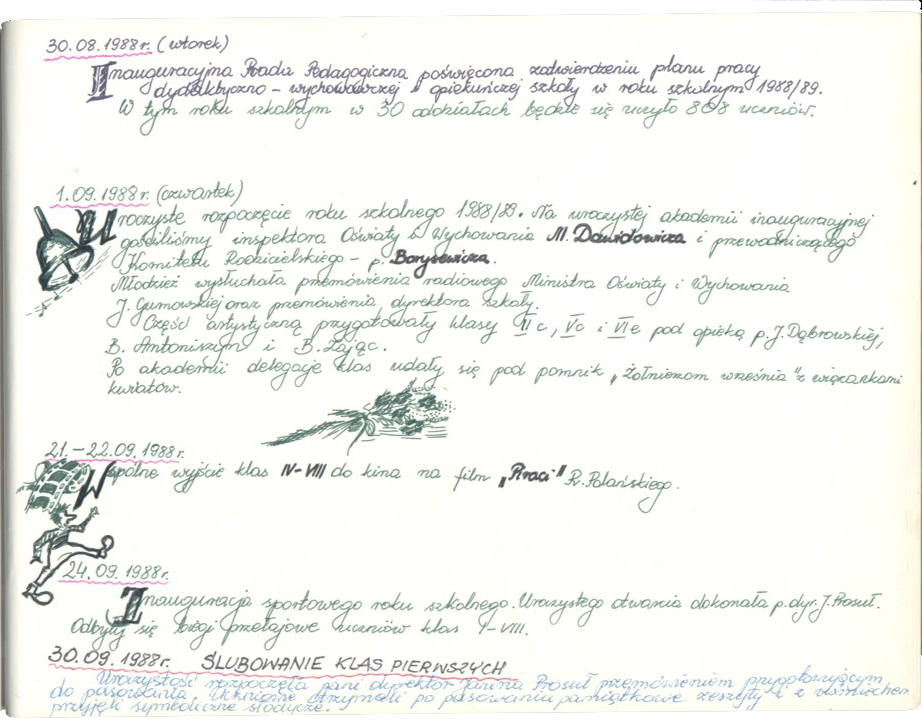 30.08.1988r. (wtorek)
Inauguracyjna Rada Pedagogiczna poświęcona zatwierdzeniu planu pracy
dydaktyczno - wychowawczej i opiekuńczej szkoły w roku szkolnym 1988/89.
W tym roku szkolnym w 30 oddziałach będzie się uczyło 808 uczniów.
1.09.1988r. (czwartek)
Uroczyste rozpoczęcie roku szkolnego 1988/89. Na uroczystej akademii inauguracyjnej
gościliśmy inspektora Oświaty i Wychowania M. Dawidowicza i przewodniczącego
Komitetu Rodzicielskiego - p. Borysewicza.
Młodzież wysłuchała przemówienia radiowego Ministra Oświaty i Wychowania
J. Gumowskiej oraz przemówienia dyrektora szkoły.
Część artystyczną przygotowały klasy II c, V c i VI e pod opieką p. J. Dąbrowskiej,
B. Antoniszyn i B. Zając.
Po akademii delegacje klas udały się pod pomnik "Żołnierzom września" z wiązankami
kwiatów.
21.-22.09.1988r.
Wspólne wyjście klas IV-VIII do kina na film "Piraci" R. Polańskiego.
24.09.1988r.
Inauguracja sportowego roku szkolnego. Uroczystego otwarcia dokonała p. dyr. J. Prosuł.
Odbyły się biegi przełajowe uczniów klas I-VIII.
30.09.1988r. ŚLUBOWANIE KLAS PIERWSZYCH
Uroczystość rozpoczęła pani dyrektor Janina Prosuł przemówieniem
do pasowania. Uczniowie otrzymali po pasowaniu pamiątkowe zeszyty i z uśmiechem
przyjęli symboliczne słodycze.